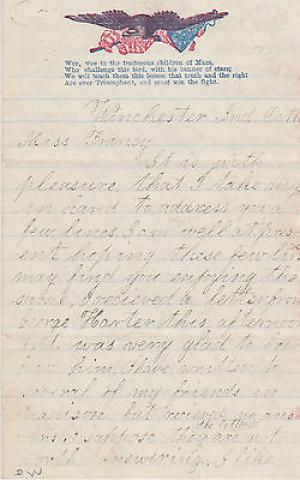 Woe, woe to the traitorous children of Mars,
Who challenge this bird, with his banner of stars;
We will teach them this lesson that truth and the right
Are ever Triumphant, and must win the fight.
Winchester Ind. Oct
Miss Francy
It is with
pleasure that I take my
in hand to address you a
few lines. I am well at pres
ent hoping these few lin
may find you enjoying the
same, I recieved a letter from
George Harter this afternoon
was very glad to hear
from him, I have written to
several of my friends in
Madison but recieve no ans
wers I suppose the letters they are not
worth answering. I like